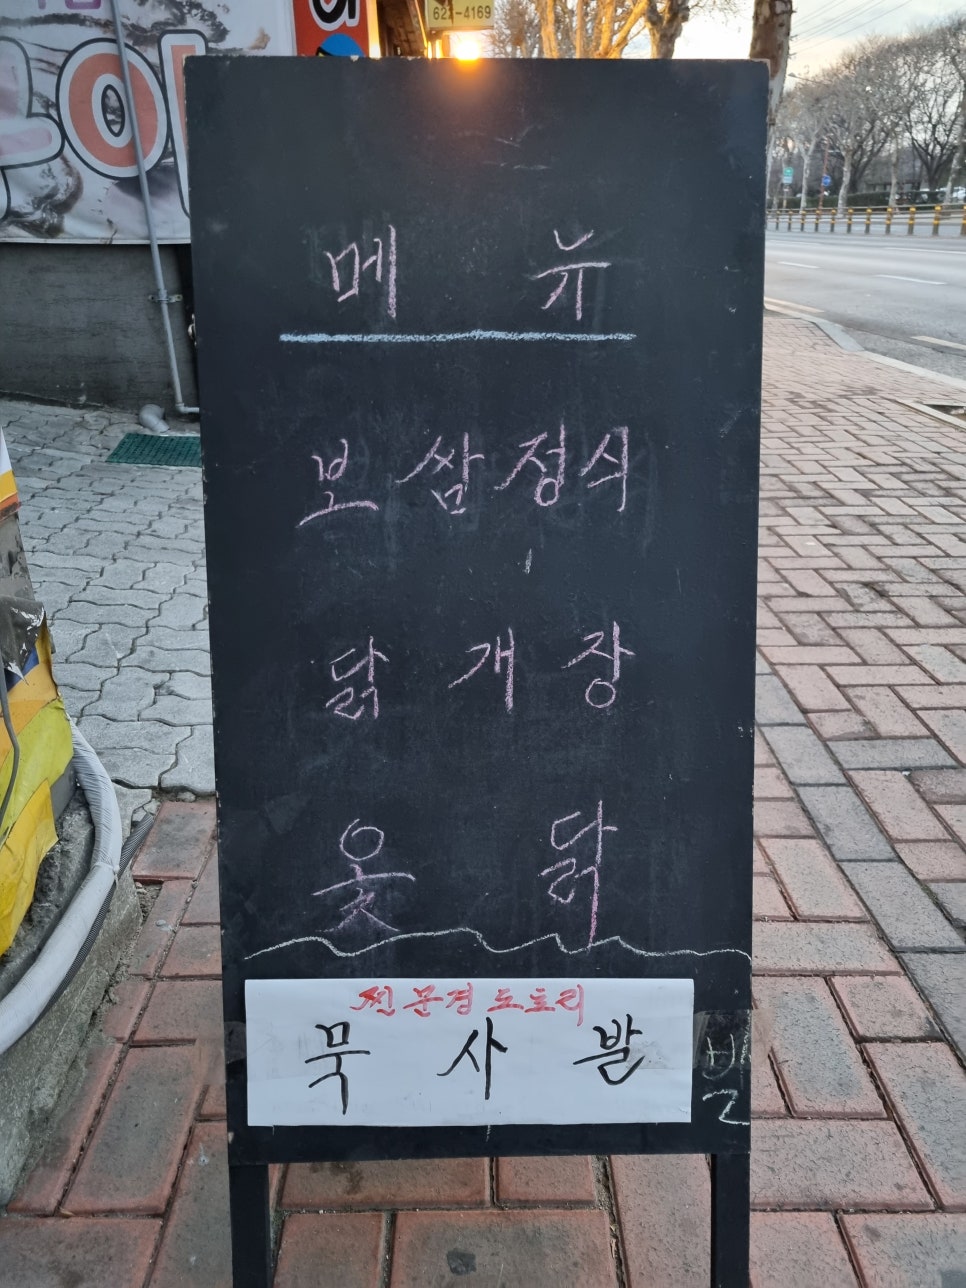 622-4169
메 뉴
보쌈정식
닭 개 장
옻 닭
찐 문경 도토리
묵 사 발